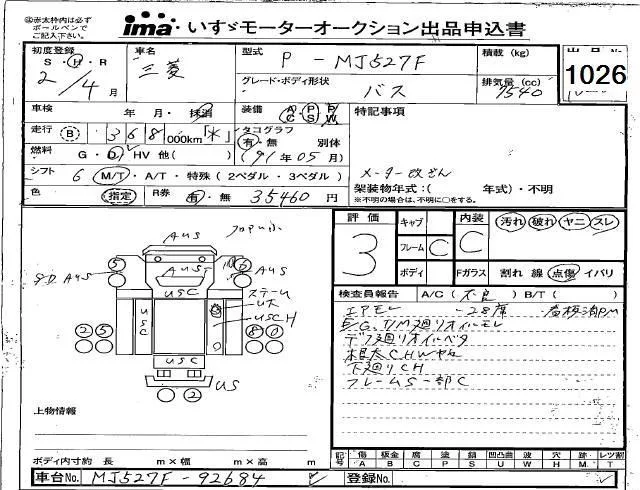 ※赤太枠内は必ず
ボールペンで
ご記入下さい。
ima いすゞモーターオークション出品申込書
初度登録 車名 型式 P - MJ527F 積載(kg)
S・H・R 三菱 グレード・ボディ形状 排気量(cc) 1026
2/4月 バス 7540
車検 年 月・抹消 装備 AC PS PW 特記事項
走行 B 368000km「*」 タコグラフ 有・無 別体
燃料 G・D HV 他( ) (91年05月)
シフト 6 M/T・A/T・特殊(2ペダル・3ペダル) メーター改ざん
架装物年式:( 年式)・不明
※不明の場合は、不明に○をする。
色 指定 R券 有・無 35460円
評価 3 キャブ 内装 C 汚れ 破れ ヤニ スレ
フレーム C
ボディ Fガラス 割れ 線 点傷 イバリ
AUS
S.D AUS
AUS
USC
USC
スチーム
USCH
USC
US
5 6
2 5 8
2
検査員報告 A/C(不良) B/T( )
エアモレ -28席
E/G,T/M廻りオイルモレ
デフ廻りオイルベタ
下廻りCH
フレームS一部C
上物情報
ボディ内寸約 長 m×幅 m×高 m
記号 傷A 板金B 腐C 塗P 錆S 凹凸曲U 波W 穴H 跡M レンズ割T
車台No. MJ527F-92684
登録No.